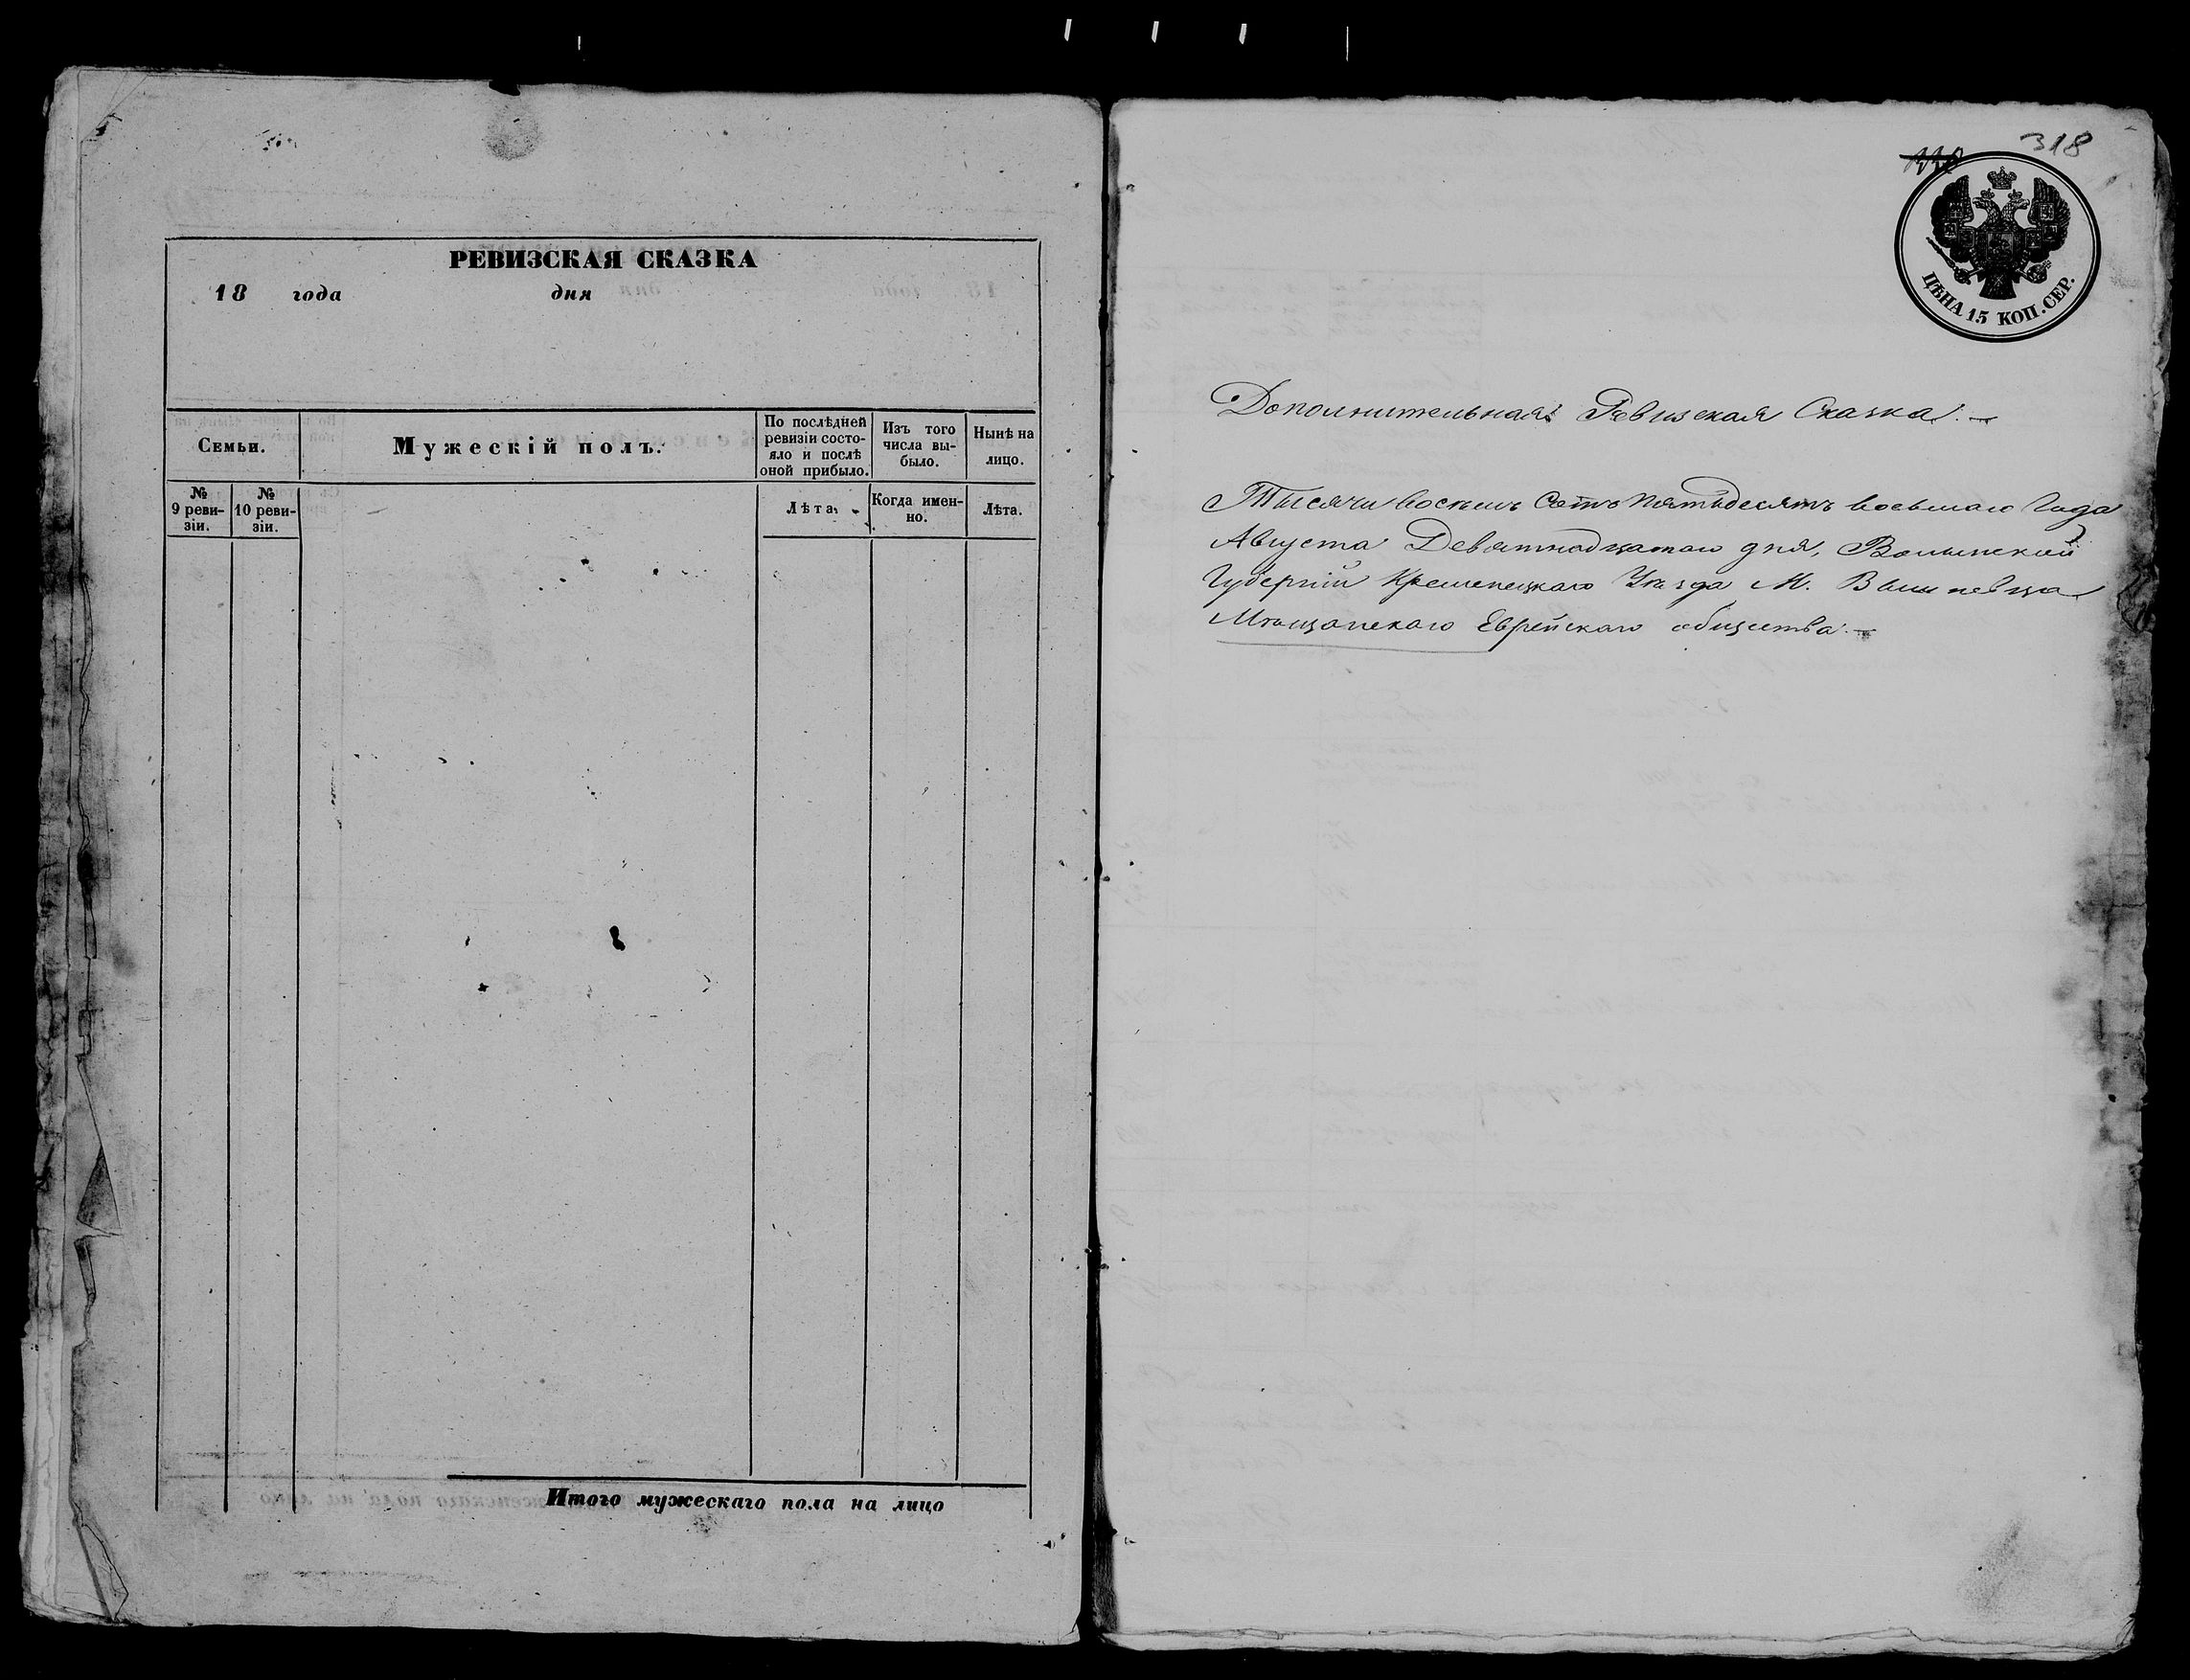 РЕВИЗСКАЯ СКАЗКА
18 года дня
Семьи.
Мужескій полъ.
По послѣдней
ревизіи состо-
яло и послѣ
оной прибыло.
Изъ того
числа вы-
было.
Нынѣ на
лицо.
№
9 реви-
зіи.
№
10 реви-
зіи.
Лѣта.
Когда имен-
но.
Лѣта.
Итого мужескаго пола на лицо
318
ЦѢНА 15 КОП. СЕР.
Дополнительная Ревизская Сказка.
Тысячи восемь сотъ пятьдесятъ восьмаго Года
Августа Девятнадцатаго дня, Волынской
Губерніи Кременецкаго Уѣзда М. Вышневца
Мѣщанскаго Еврейскаго общества.